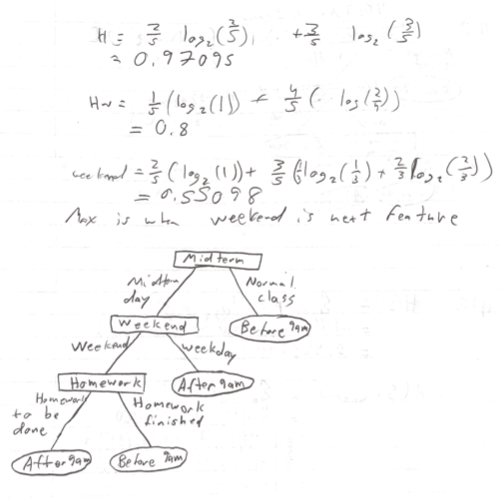 H = 2/5 log₂(2/5) + 3/5 log₂(3/5)
= 0.97095
Hw = 1/5 (log₂(1)) + 4/5 (· log(2/4))
= 0.8
weekend = 2/5 (log₂(1)) + 3/5 (1/3 log₂(1/3) + 2/3 log₂(2/3))
= 0.55098
Max is when weekend is next feature
Midterm
Midterm day
Normal class
Weekend
Before 9am
Weekend
weekday
Homework
After 9am
Homework to be done
Homework finished
After 9am
Before 9am